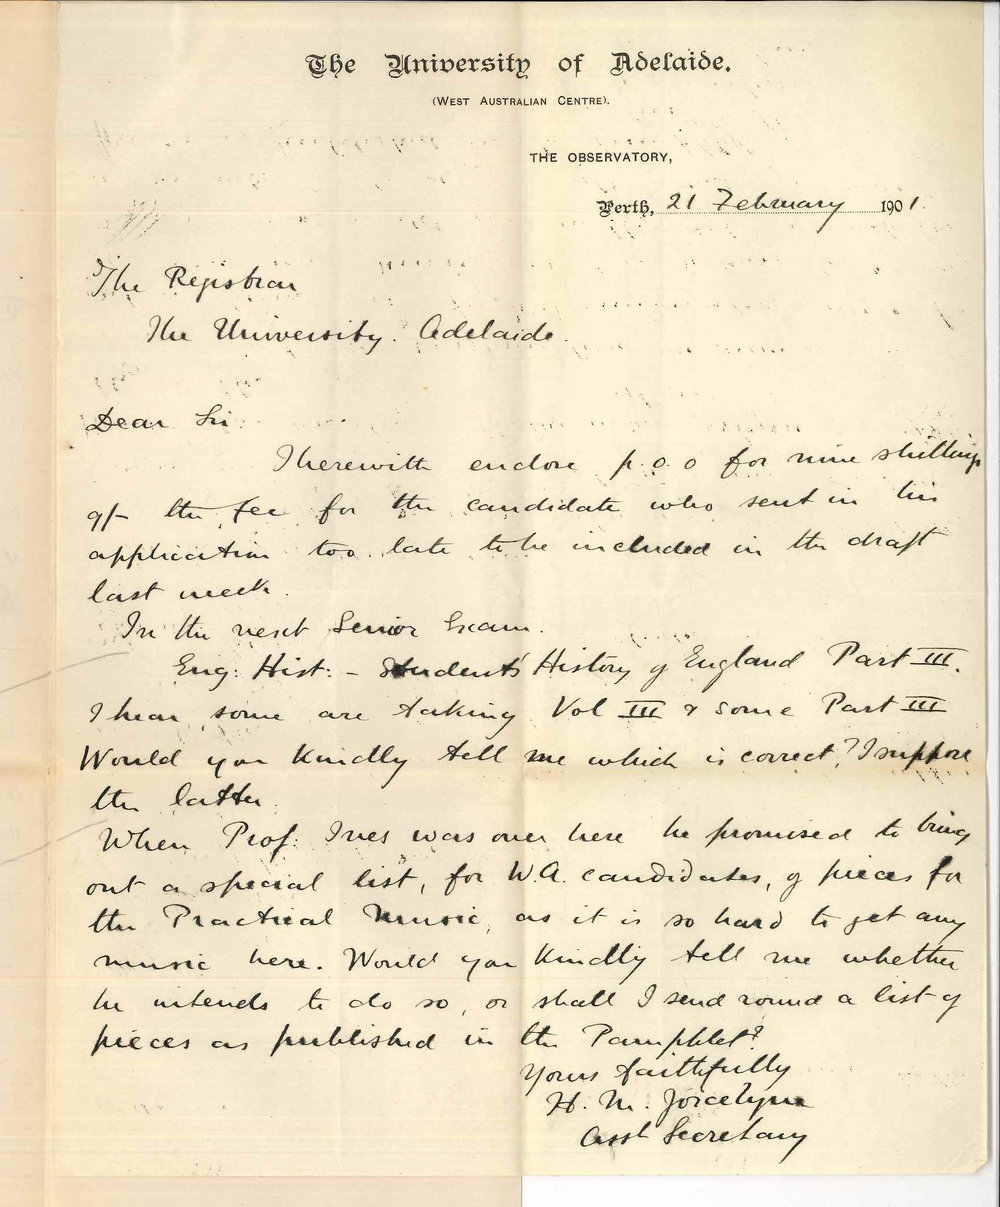 The University of Adelaide.
(WEST AUSTRALIAN CENTRE).
THE OBSERVATORY,
Perth, 21 February 1901.
The Registrar
The University. Adelaide.
Dear Sir.
I herewith enclose p.o.o for nine shillings
9/- the fee for the candidate who sent in his
application too late to be included in the draft
last week.
In the next Senior Exam.
Eng: Hist: - Students' History of England Part III.
I hear some are taking Vol III & some Part III
Would you kindly tell me which is correct? I suppose
the latter.
When Prof: Ives was over here he promised to bring
out a special list, for W.A. candidates, of pieces for
the Practical Music, as it is so hard to get any
music here. Would you kindly tell me whether
he intends to do so, or shall I send round a list of
pieces as published in the Pamphlet?
Yours faithfully
H. M. Joicelyne
Asst Secretary